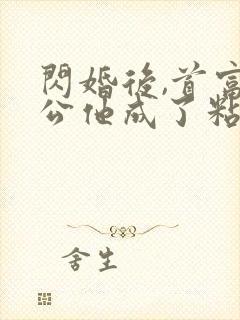 閃婚後,首富
公他成了粘
舍生